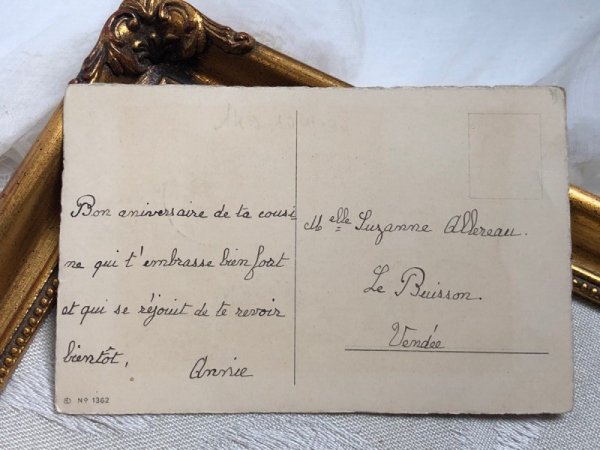 Bon aniversaire de ta cousi
ne qui t'embrasse bien fort
et qui se réjouit de te revoir
bientôt,
Annie
Melle Suzanne Allereau.
Le Buisson.
Vendée
© Nº 1362